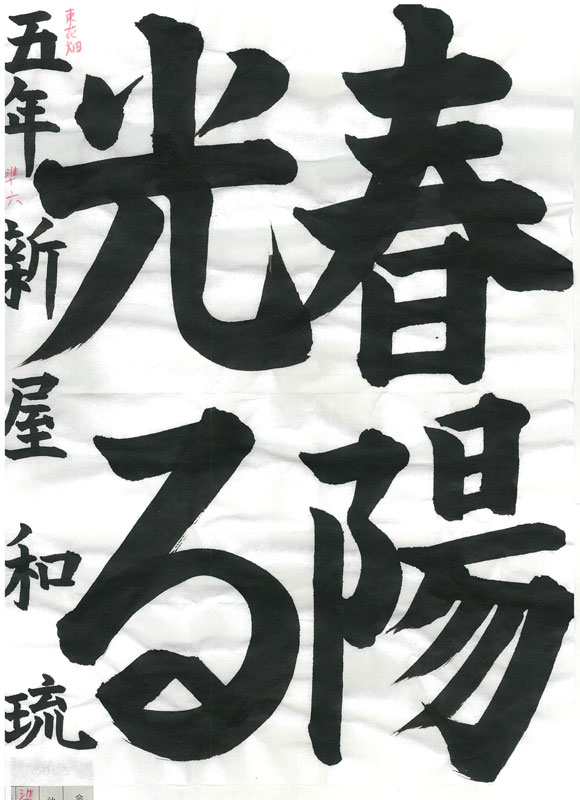 春陽
光る
五年 新屋和琉
東花畑
準六